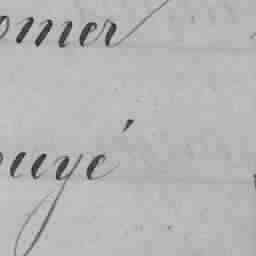 omer
ouyé